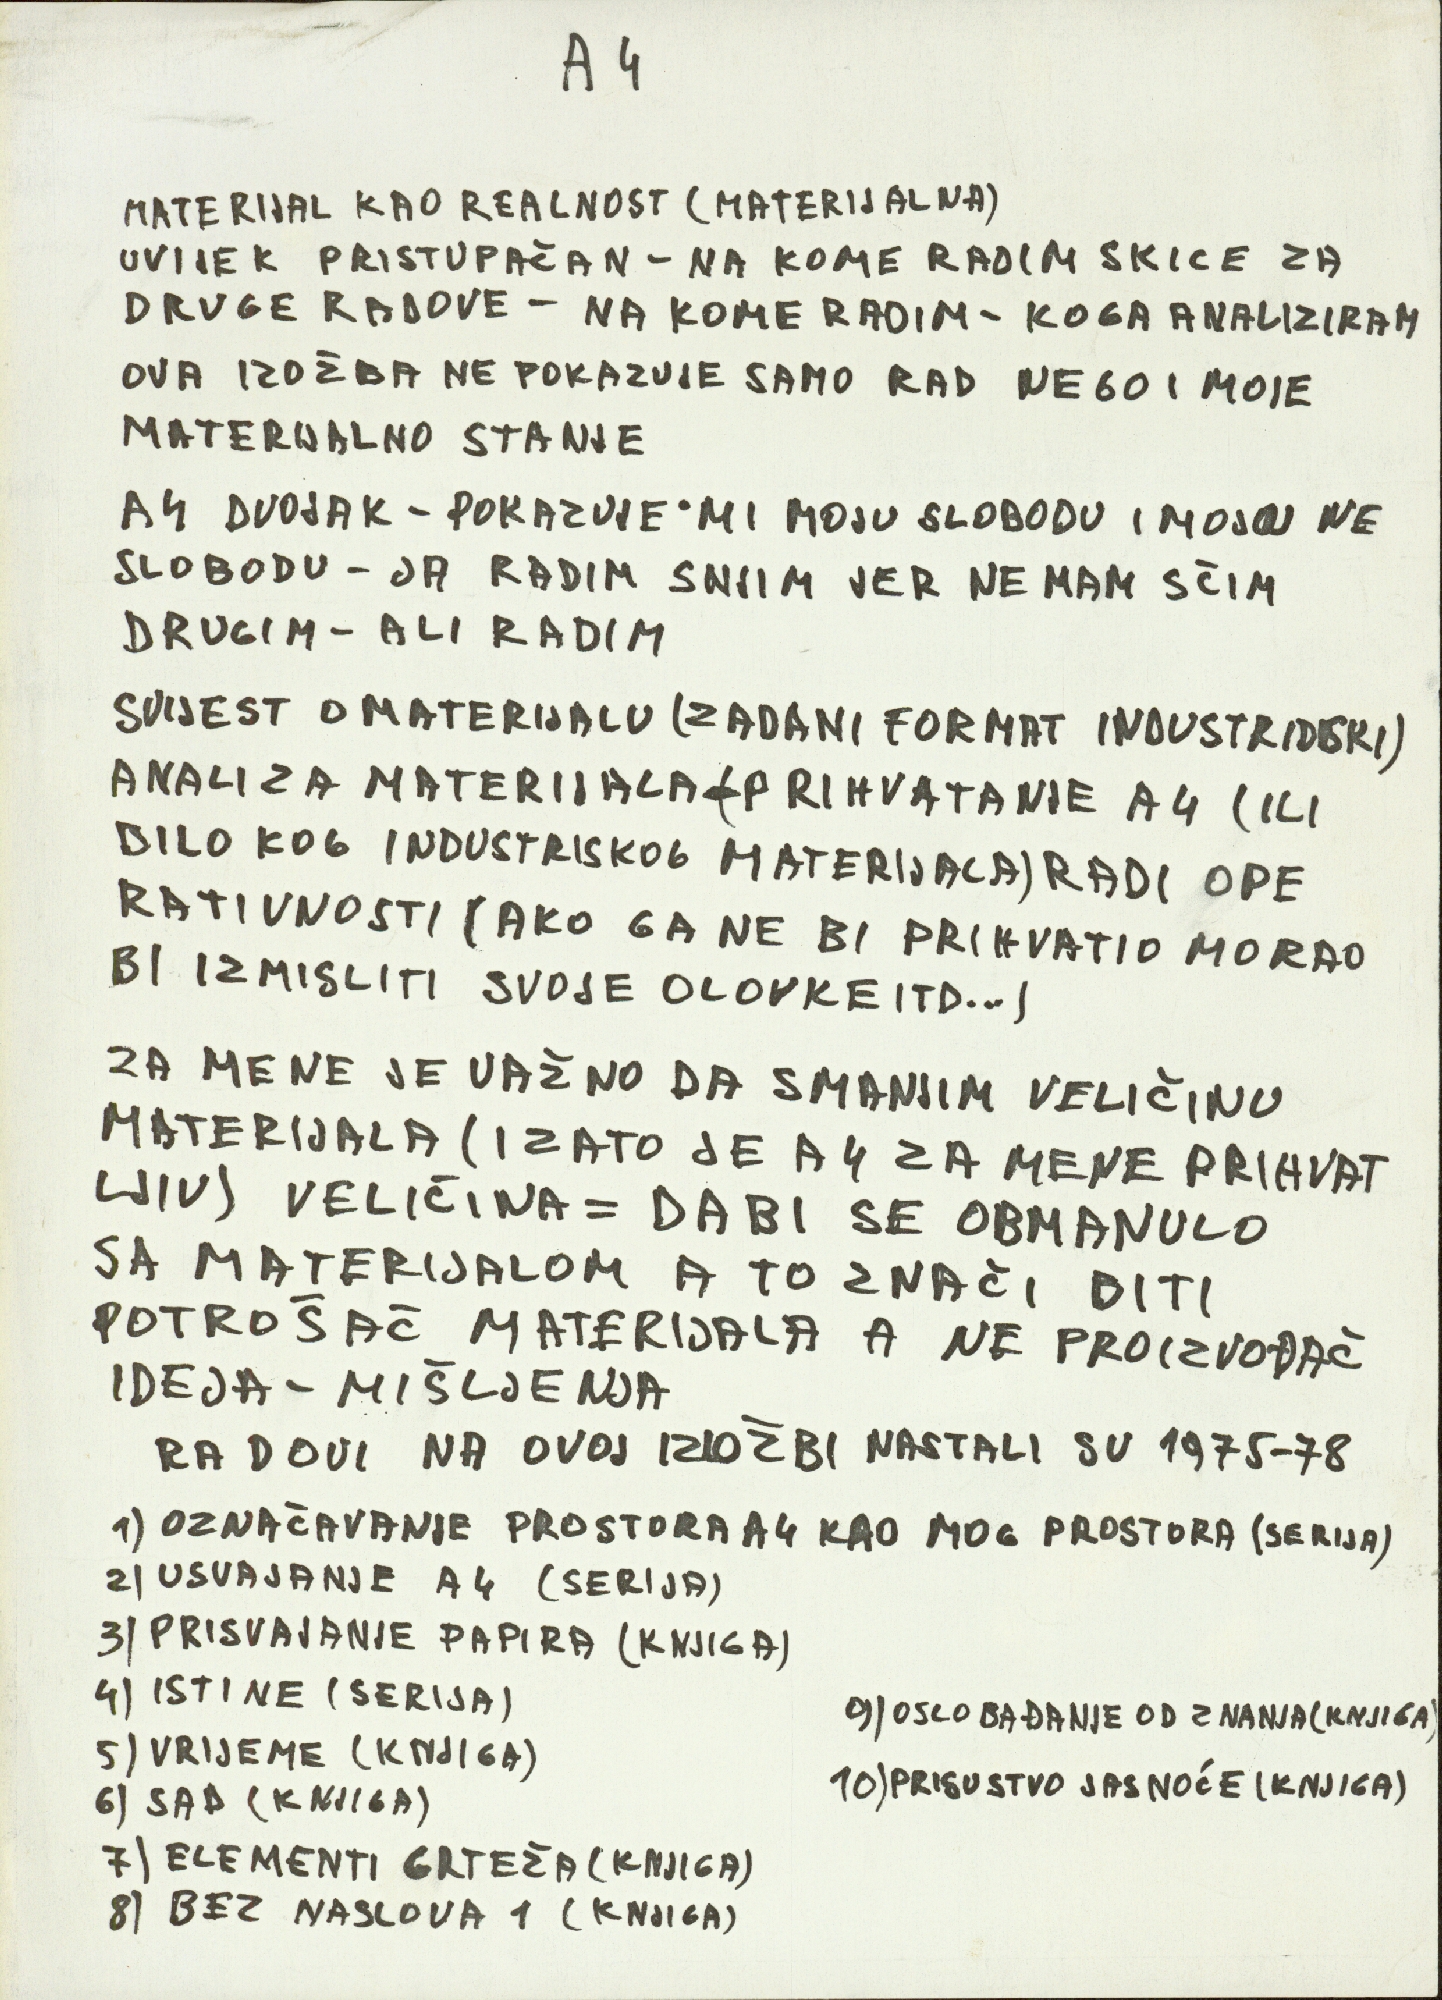 A4
MATERIJAL KAO REALNOST (MATERIJALNA)
UVIJEK PRISTUPAČAN – NA KOME RADIM SKICE ZA
DRUGE RADOVE – NA KOME RADIM – KOGA ANALIZIRAM
OVA IZOŽBA NE POKAZUJE SAMO RAD NEGO I MOJE
MATERIJALNO STANJE
A4 DVOJAK – POKAZUJE MI MOJU SLOBODU I MOJU NE
SLOBODU – JA RADIM SNJIM JER NEMAM SČIM
DRUGIM – ALI RADIM
SVIJEST O MATERIJALU (ZADANI FORMAT INDUSTRISKI)
ANALIZA MATERIJALA (PRIHVATANJE A4 (ILI
BILO KOG INDUSTRISKOG MATERIJALA) RADI OPE
RATIVNOSTI (AKO GA NE BI PRIHVATIO MORAO
BI IZMISLITI SVOJE OLOVKE ITD...)
ZA MENE JE VAŽNO DA SMANJIM VELIČINU
MATERIJALA (I ZATO JE A4 ZA MENE PRIHVAT
LJIV) VELIČINA = DA BI SE OBMANULO
SA MATERIJALOM A TO ZNAČI BITI
POTROŠAČ MATERIJALA A NE PROIZVOĐAČ
IDEJA – MIŠLJENJA
RADOVI NA OVOJ IZLOŽBI NASTALI SU 1975–78
1) OZNAČAVANJE PROSTORA A4 KAO MOG PROSTORA (SERIJA)
2) USVAJANJE A4 (SERIJA)
3) PRISVAJANJE PAPIRA (KNJIGA)
4) ISTINE (SERIJA)
5) VRIJEME (KNJIGA)
6) SAD (KNJIGA)
7) ELEMENTI CRTEŽA (KNJIGA)
8) BEZ NASLOVA 1 (KNJIGA)
9) OSLOBAĐANJE OD ZNANJA (KNJIGA)
10) PRISUSTVO JASNOĆE (KNJIGA)